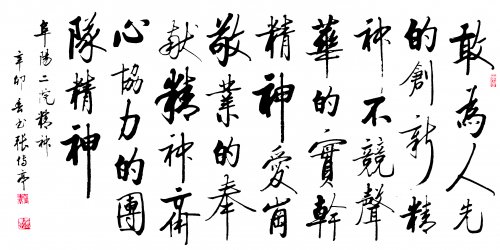 敢為人先
的創新精
神不競聲
華的實幹
精神愛崗
敬業的奉
献精神齊
心協力的團
隊精神
阜陽二院精神
辛卯書張亭